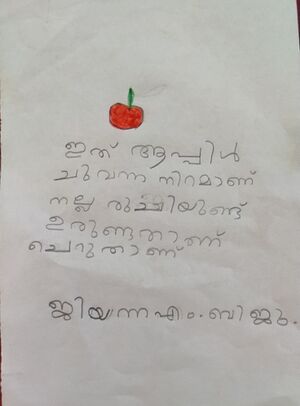 ഇത് ആപ്പിൾ
ചുവന്ന നിറമാണ്
നല്ല രുചിയുണ്ട്
ഉരുണ്ടതാണ്
ചെറുതാണ്
ജിയന്ന എം. ബിജു.